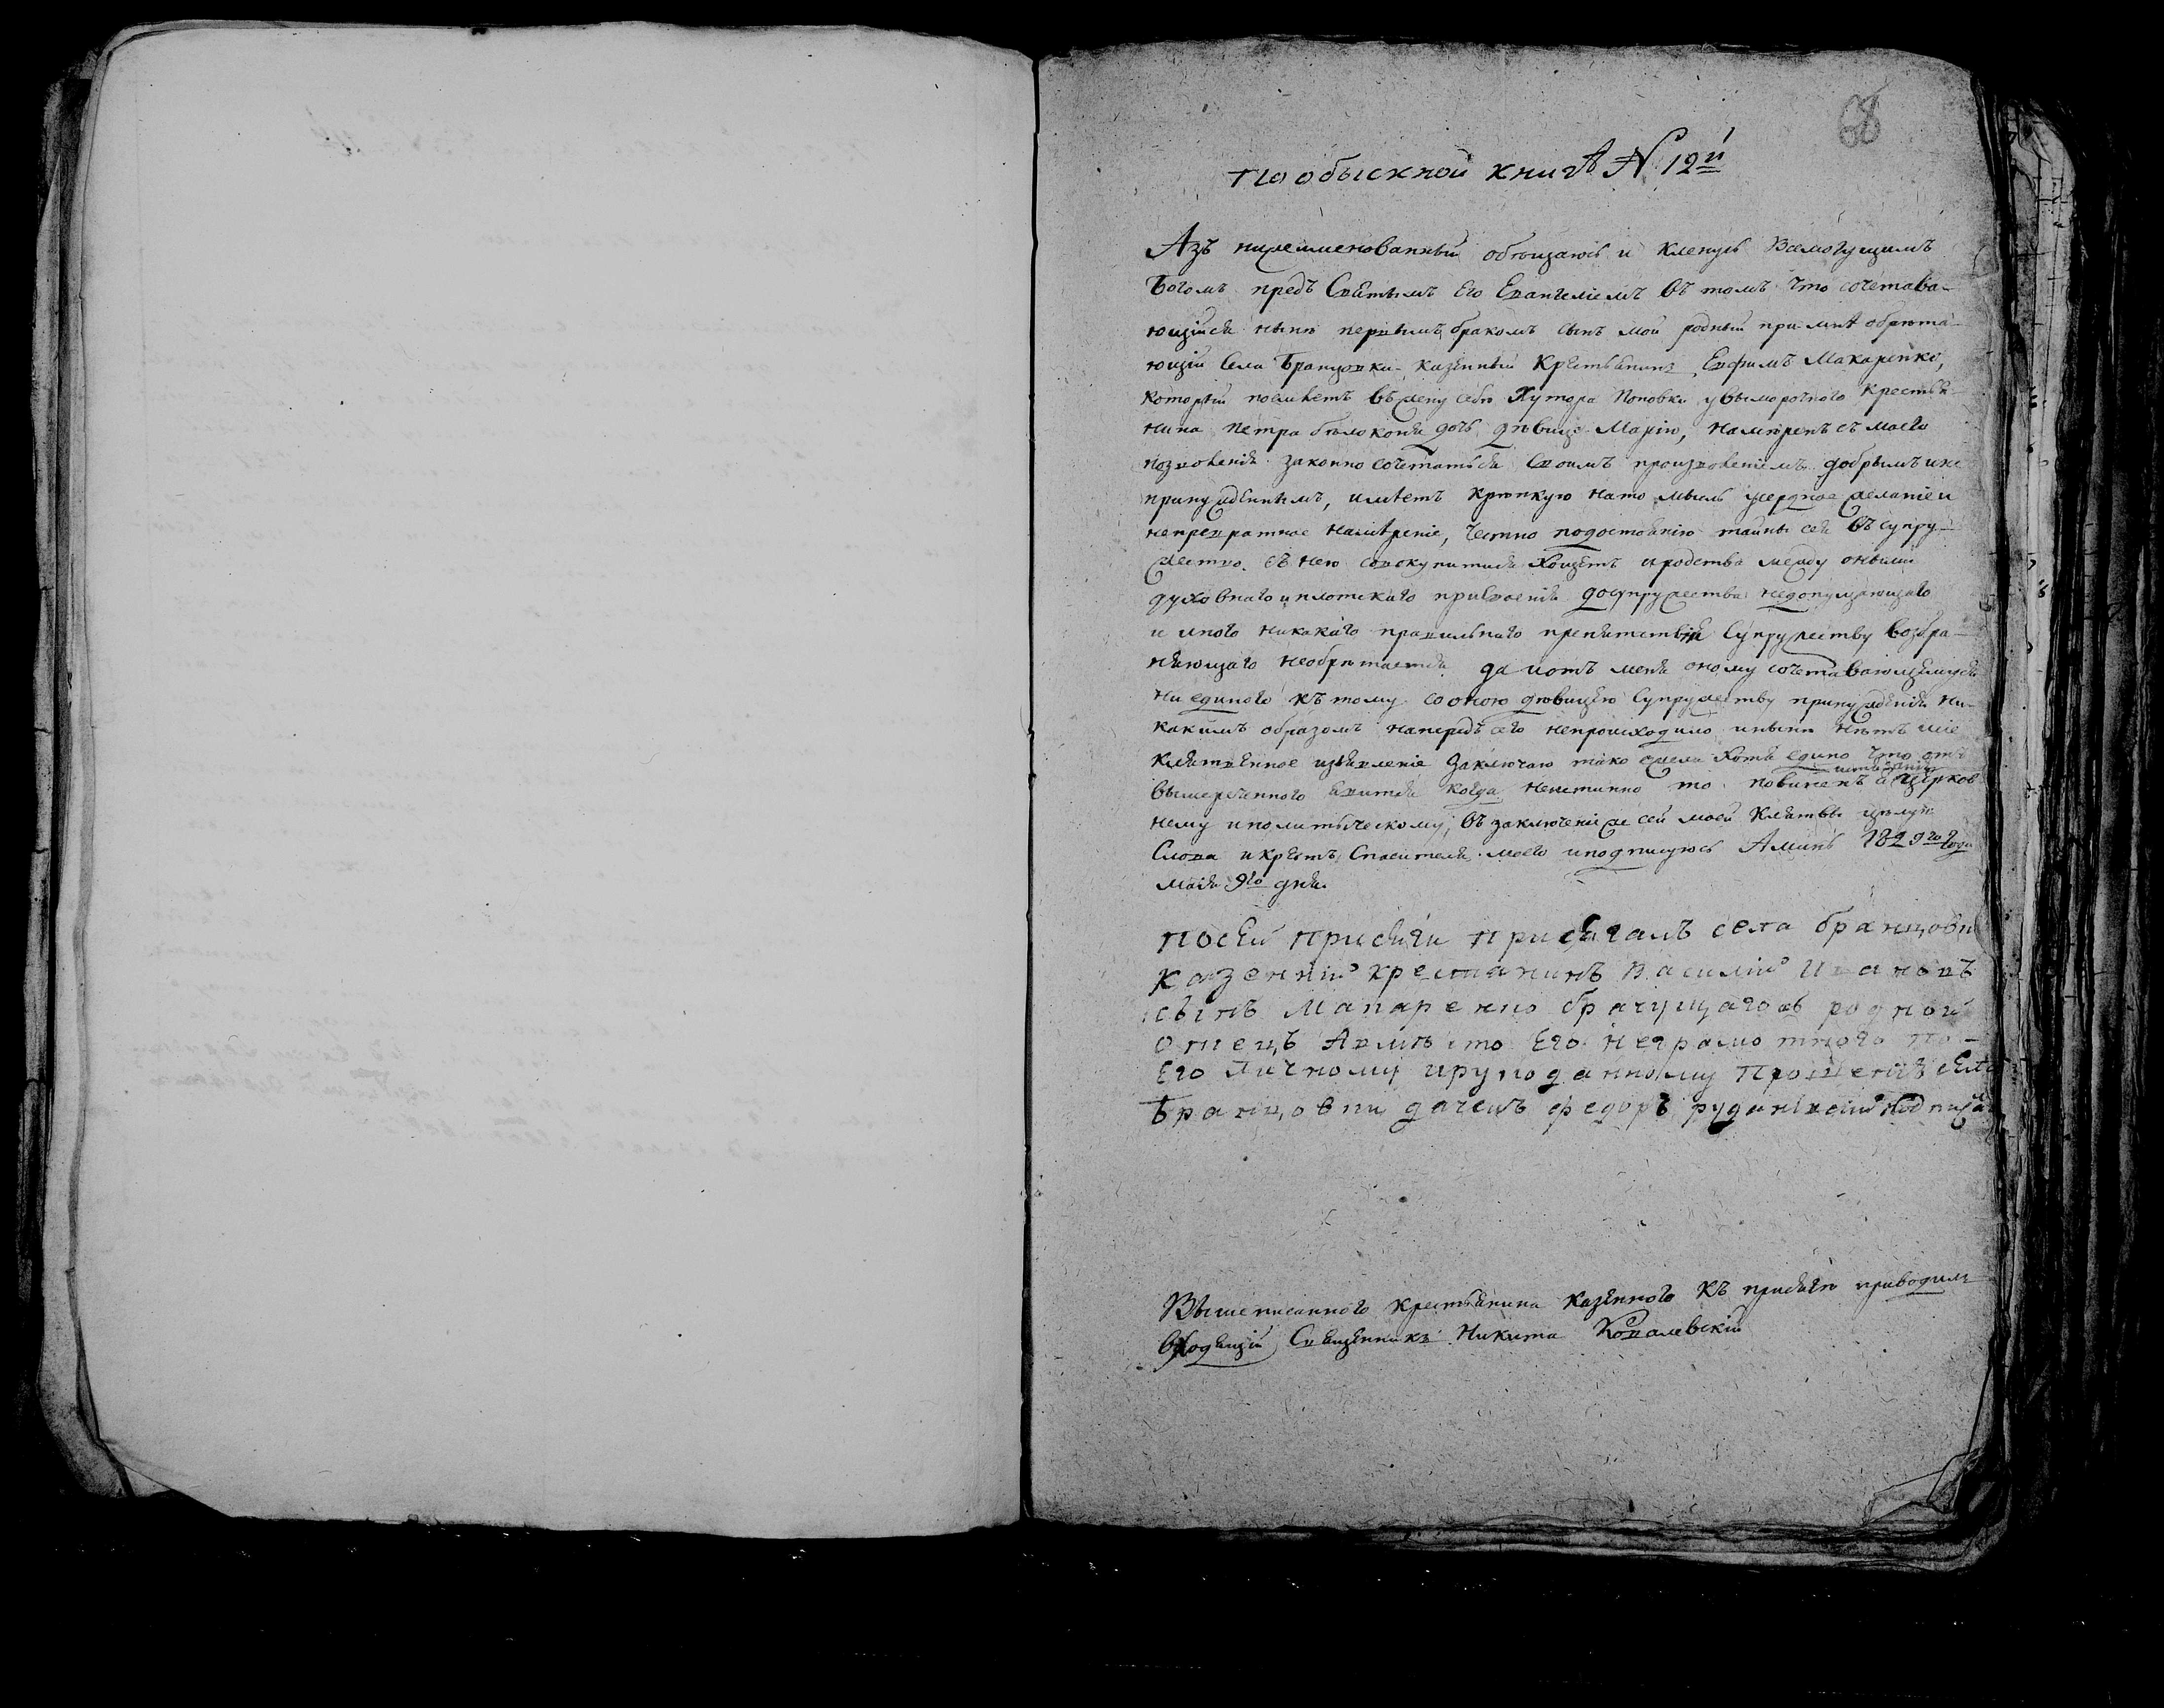 68
По обыскной книгѣ № 12й
Азъ нижеименованный обѣщаюсь и кленусь Всемогущимъ
Богомъ предъ Святымъ Его Евангеліемъ въ томъ что сочетава-
ющійся нынѣ первымъ бракомъ сынъ мой родный при мнѣ обрѣта-
ющій села Бранцовки казенный крестьянинъ Евфимъ Макаренко,
который поемлетъ въ жену себѣ хутора Поповки у выморочного крестья-
нина Петра бѣлоконя дочь дѣвицу Марію, намѣренъ съ моего
позволенія законно сочетаться своимъ произволеніемъ добрымъ и не
принужденнымъ, имѣетъ крѣпкую на то мысль усердное желаніе и
непревратное намѣреніе, честно по достоянію тайны сея въ супру-
жество съ нею совокупитися хощетъ и родства между оными
духовнаго и плотскаго присвоенія до супружества недопущающаго
и иного никакаго правильнаго препятствія супружеству возбра-
няющаго необрѣтается да и отъ меня оному сочетавающемуся
ни единого къ тому со оною дѣвицею супружеству принужденія ни-
какимъ образомъ напередъ сего непроисходило и нынѣ нѣтъ сіе
клятвенное изъявленіе заключаю тако ежели хотя едино что отъ
вышереченного явится когда неистинно то повиненъ истязанію церков
нему и политическому, въ заключеніе же сей моей клятвы цѣлую
Слова и крестъ Спасителя моего и подписуюсь Аминь 1829го года
мая 9го дня.
По сей присяги присягалъ села бранцовки
казенній крестянинъ Василій Ивановъ
сынъ Макаренко брачущагось родной
отецъ Авмѣсто его неграмотного по-
Его личному и рукоданному прошенію села
Бранцовки дячекъ федоръ руданскій подписал
Вышеписанного крестьянина казенного къ присягѣ приводилъ
Священникъ Никита Ковалевскій